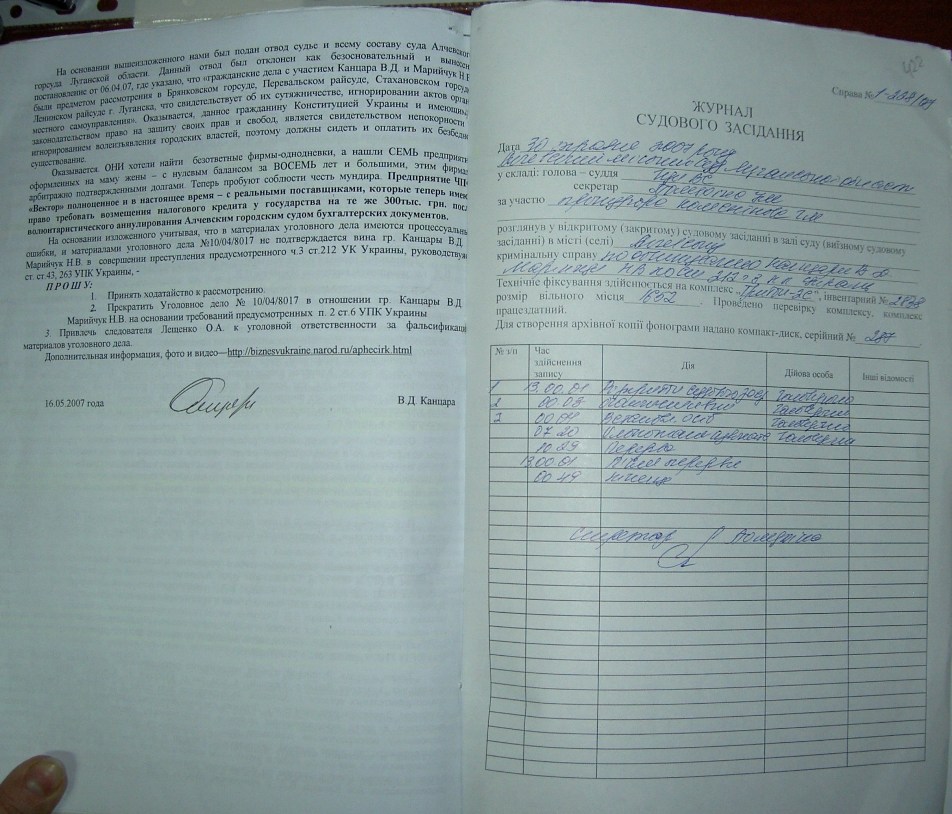 На основании вышеизложенного нами был подан отвод судье и всему составу суда Алчевского
горсуда Луганской области. Данный отвод был отклонен как безосновательный и вынесен
постановление от 06.04.07, где указано, что «гражданские дела с участием Канцара В.Д. и Марийчук Н.В
были предметом рассмотрения в Брянковском горсуде, Перевальском райсуде, Стахановском горсуде
Ленинском райсуде г. Луганска, что свидетельствует об их сутяжничестве, игнорировании актов орга
местного самоуправления». Оказывается, данное гражданину Конституцией Украины и имеющи
законодательством право на защиту своих прав и свобод, является свидетельством непокорности
игнорированием волеизъявления городских властей, поэтому должны сидеть и оплатить их безбедн
существование.
Оказывается ОНИ хотели найти безответные фирмы-однодневки, а нашли СЕМЬ предприяти
оформленных на маму жены – с нулевым балансом за ВОСЕМЬ лет и большими, этим фирма
арбитражно подтвержденными долгами. Теперь пробуют соблюсти честь мундира. Предприятие ЧП
«Вектор» полноценное и в настоящее время – с реальными поставщиками, которые теперь имею
право требовать возмещения налогового кредита у государства на те же 300тыс. грн. посл
волюнтаристического аннулирования Алчевским городским судом бухгалтерских документов.
На основании изложенного учитывая, что в материалах уголовного дела имеются процессуальны
ошибки, и материалами уголовного дела №10/04/8017 не подтверждается вина гр. Канцары В.Д.
Марийчук Н.В. в совершении преступления предусмотренного ч.3 ст.212 УК Украины, руководствуя
ст. ст.43, 263 УПК Украины, -
ПРОШУ:
1. Принять ходатайство к рассмотрению.
2. Прекратить Уголовное дело № 10/04/8017 в отношении гр. Канцары В.Д
Марийчук Н.В. на основании требований предусмотренных п. 2 ст.6 УПК Украины
3. Привлечь следователя Лещенко О.А. к уголовной ответственности за фальсификаци
материалов уголовного дела.
Дополнительная информация, фото и видео—http://biznesvukraine.narod.ru/aphecirk.html
16.05.2007 года В.Д. Канцара
Справа № 1-237/09
ЖУРНАЛ
СУДОВОГО ЗАСІДАННЯ
Дата 30 травня 2007 року
Алчевський міський суд Луганської області
у складі: голова – суддя
секретар
за участю прокурора
розглянув у відкритому (закритому) судовому засіданні в залі суду (виїзному судовому
засіданні) в місті (селі)
кримінальну справу по обвинуваченню
212 ч 3
Технічне фіксування здійснюється на комплекс інвентарний № 2838
розмір вільного місця 1852 . Проведено перевірку комплексу, комплекс
працездатний.
Для створення архівної копії фонограми надано компакт-диск, серійний № 287
№ з/п Час здійснення запису Дія Дійова особа Інші відомості
1 13.00.01
2 00.03
3 00.04
07.20
10.29 Перерва
13.00.01 Після перерви
00.49 кінець
Секретар